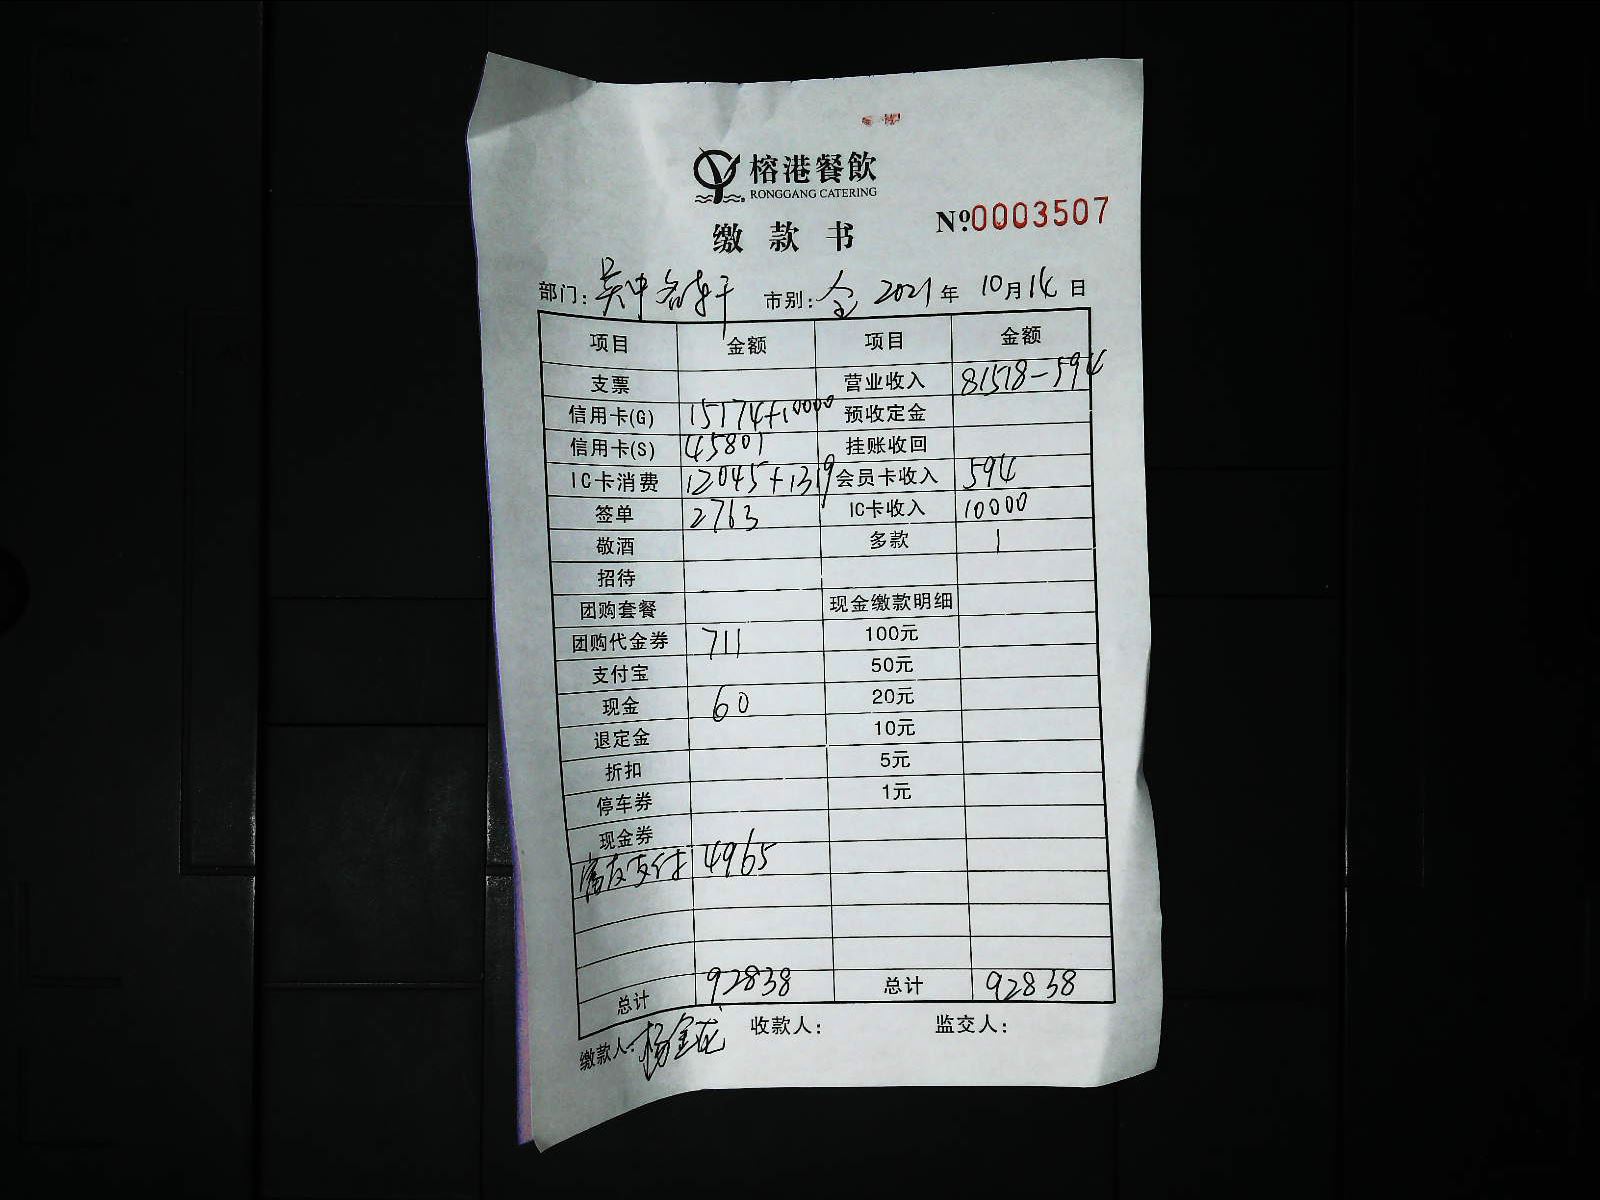 榕港餐飲
RONGGANG CATERING
缴款书
№0003507
部门: 吴中 市别: 全 2021年 10月14日
项目 金额 项目 金额
支票 营业收入 81518-594
信用卡(G) 15174+10000 预收定金
信用卡(S) 45801 挂账收回
IC卡消费 12045+1319 会员卡收入 594
签单 2763 IC卡收入 10000
敬酒 多款 1
招待
团购套餐 现金缴款明细
团购代金券 711 100元
支付宝 50元
现金 60 20元
退定金 10元
折扣 5元
停车券 1元
现金券
富友支付 4965
总计 92838 总计 92838
缴款人: 杨金龙 收款人: 监交人: